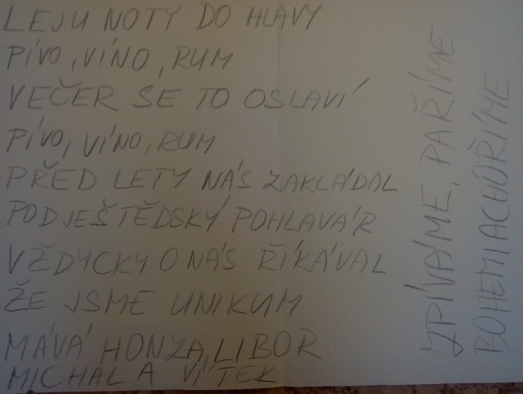 LEJU NOTY DO HLAVY
PÍVO, VÍNO, RUM
VEČER SE TO OSLAVÍ
PÍVO, VÍNO, RUM
PŘED LETY NÁS ZAKLÁDAL
PODJEŠTĚDSKÝ POHLAVÁR
VŽDYCKY O NÁS ŘÍKÁVAL
ŽE JSME UNIKUM
MÁVÁ HONZA, LIBOR
MICHAL A VÍTEK
ZPÍVÁME, PAŘÍME
BOHEMIACHOŘÍME